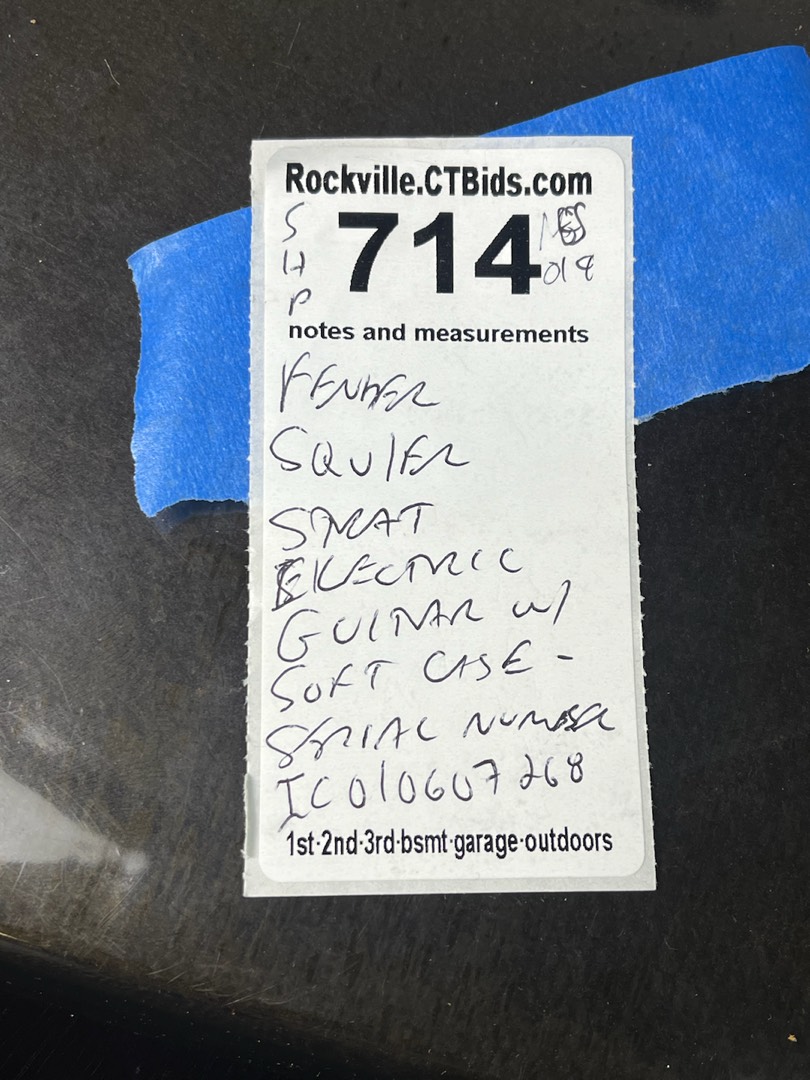 Rockville.CTBids.com
S
H
P
714
018
notes and measurements
FENDER
SQUIER
STRAT
ELECTRIC
GUITAR W/
SOFT CASE -
SERIAL NUMBER
IC010607268
1st·2nd·3rd·bsmt·garage·outdoors